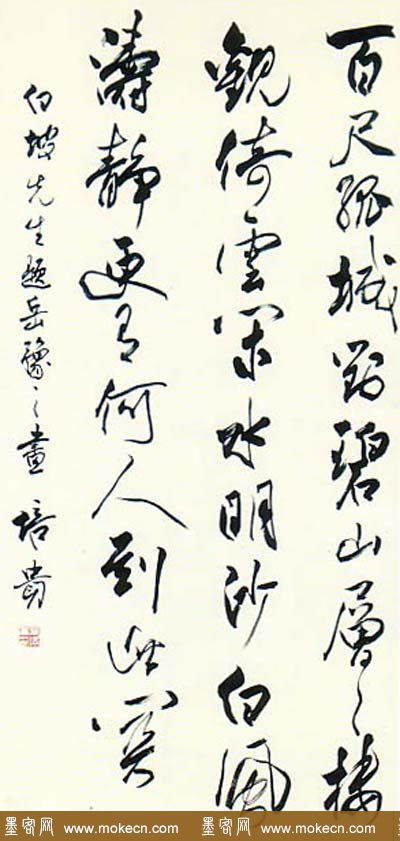 百尺孤城對碧山層々樓
觀倚雲閑水明沙白風
濤靜更有何人到此間
白坡先生題岳豫之畫 培貴
墨客网 www.mokecn.com 墨客网 www.mokecn.com